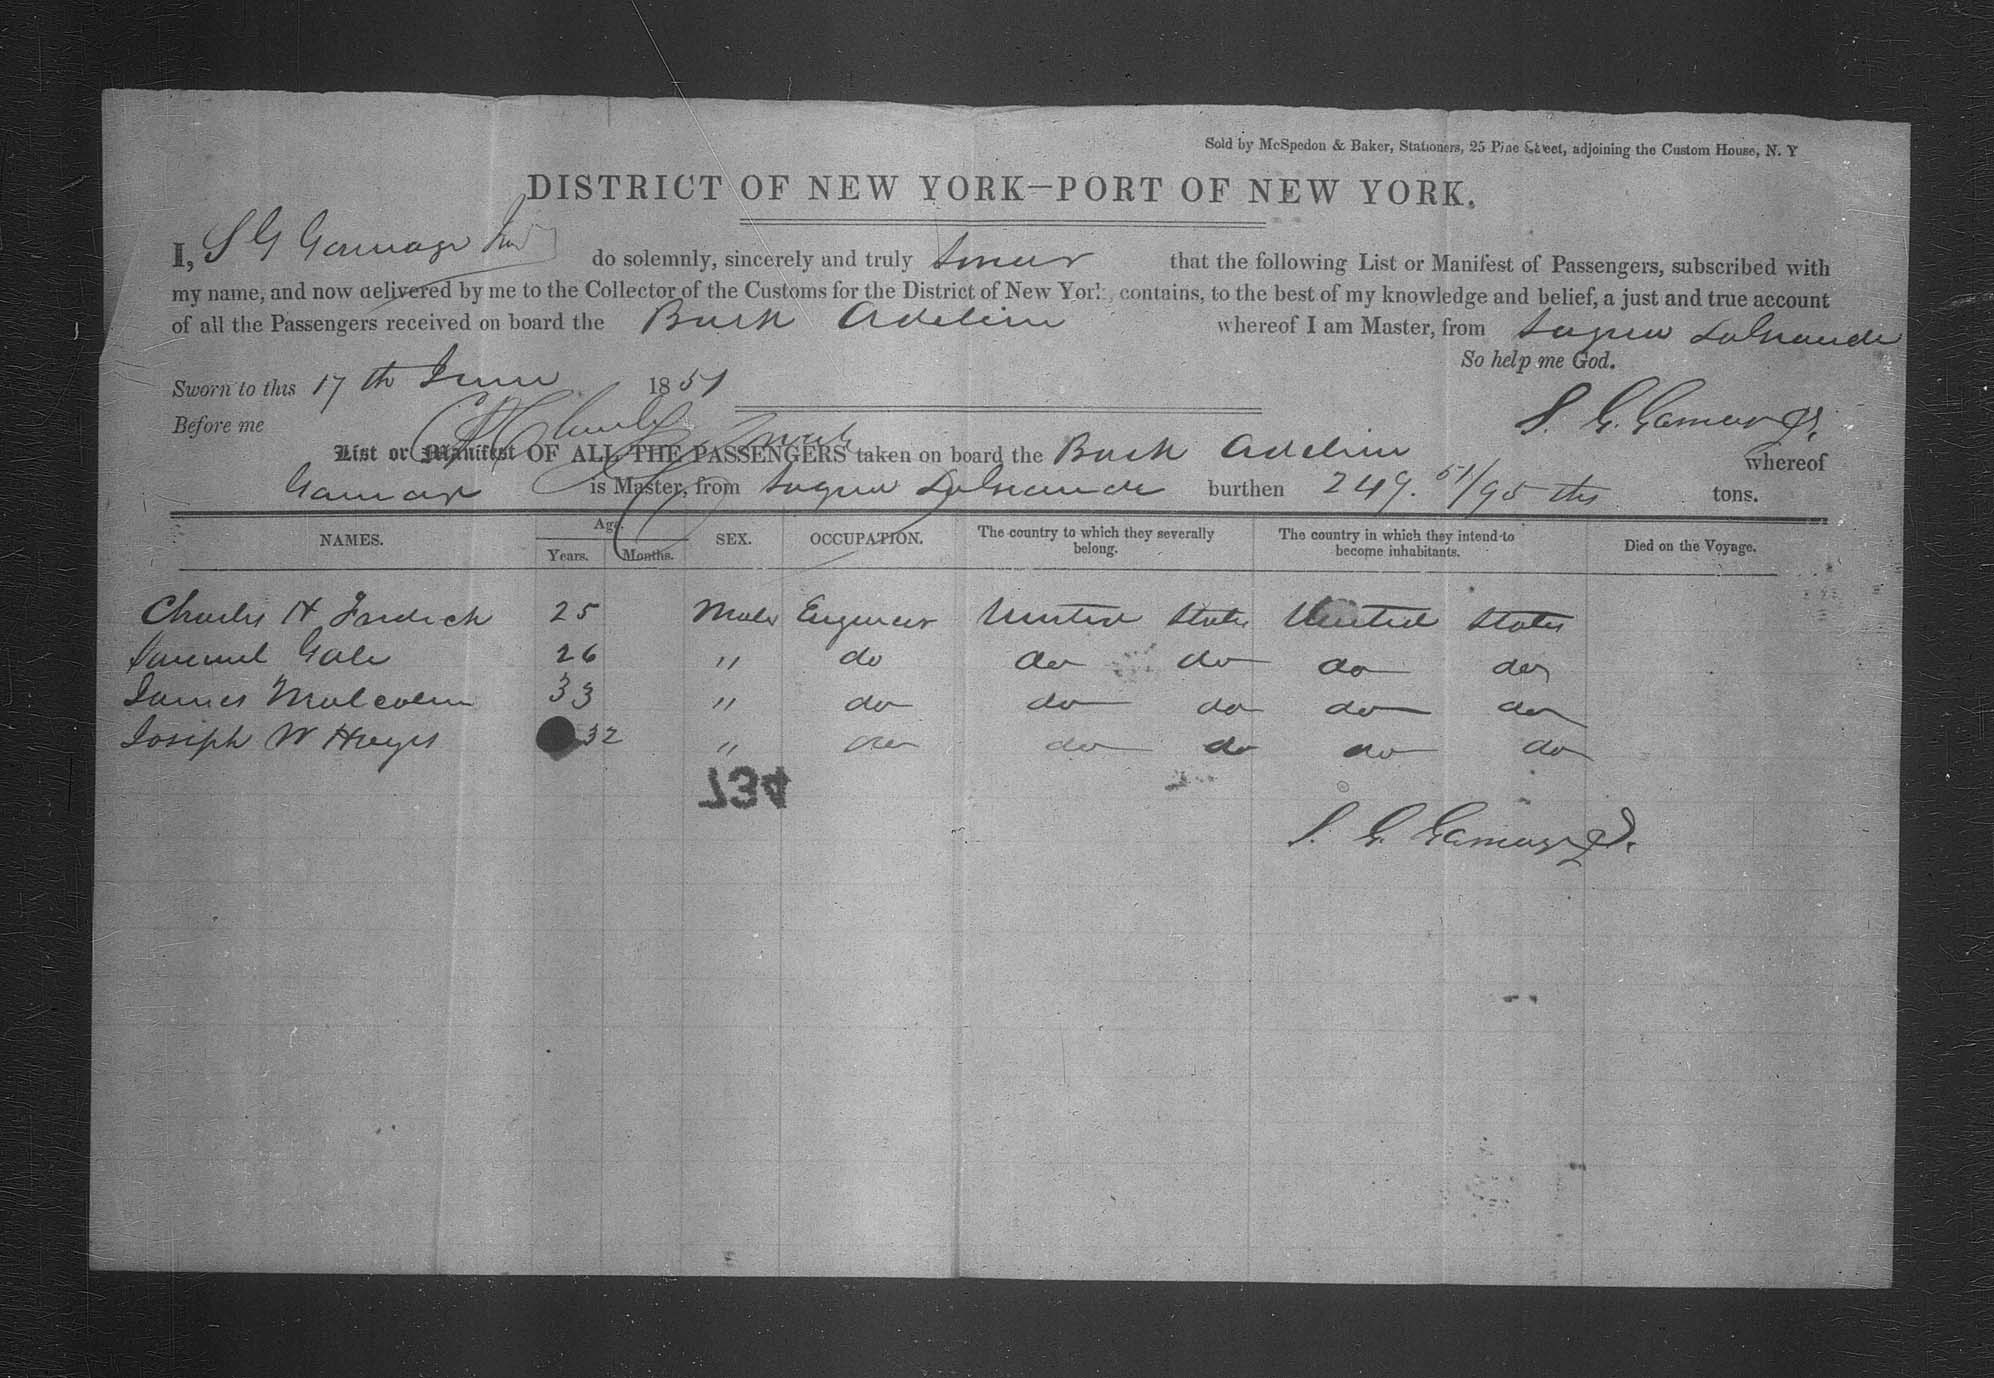 Sold by McSpedon & Baker, Stationers, 25 Pine Street, adjoining the Custom House, N. Y
DISTRICT OF NEW YORK—PORT OF NEW YORK.
I, S G Gamage do solemnly, sincerely and truly swear that the following List or Manifest of Passengers, subscribed with
my name, and now delivered by me to the Collector of the Customs for the District of New York, contains, to the best of my knowledge and belief, a just and true account
of all the Passengers received on board the Bark Adeline whereof I am Master, from Sagua La Grande
So help me God.
Sworn to this 17 th June 1851
Before me
S. G. Gamage Jr.
List or Manifest OF ALL THE PASSENGERS taken on board the Bark Adeline whereof
Gamage is Master, from Sagua La Grande burthen 249. 51/95 ths tons.
NAMES. Age. Years. Months. SEX. OCCUPATION. The country to which they severally belong. The country in which they intend to become inhabitants. Died on the Voyage.
Charles H Fredrick 25 Males Engineer United States United States
Samuel Gale 26 " do do do do do
James Malcolm 33 " do do do do do
Joseph W 32 " do do do do do
734
S. G. Gamage Jr.